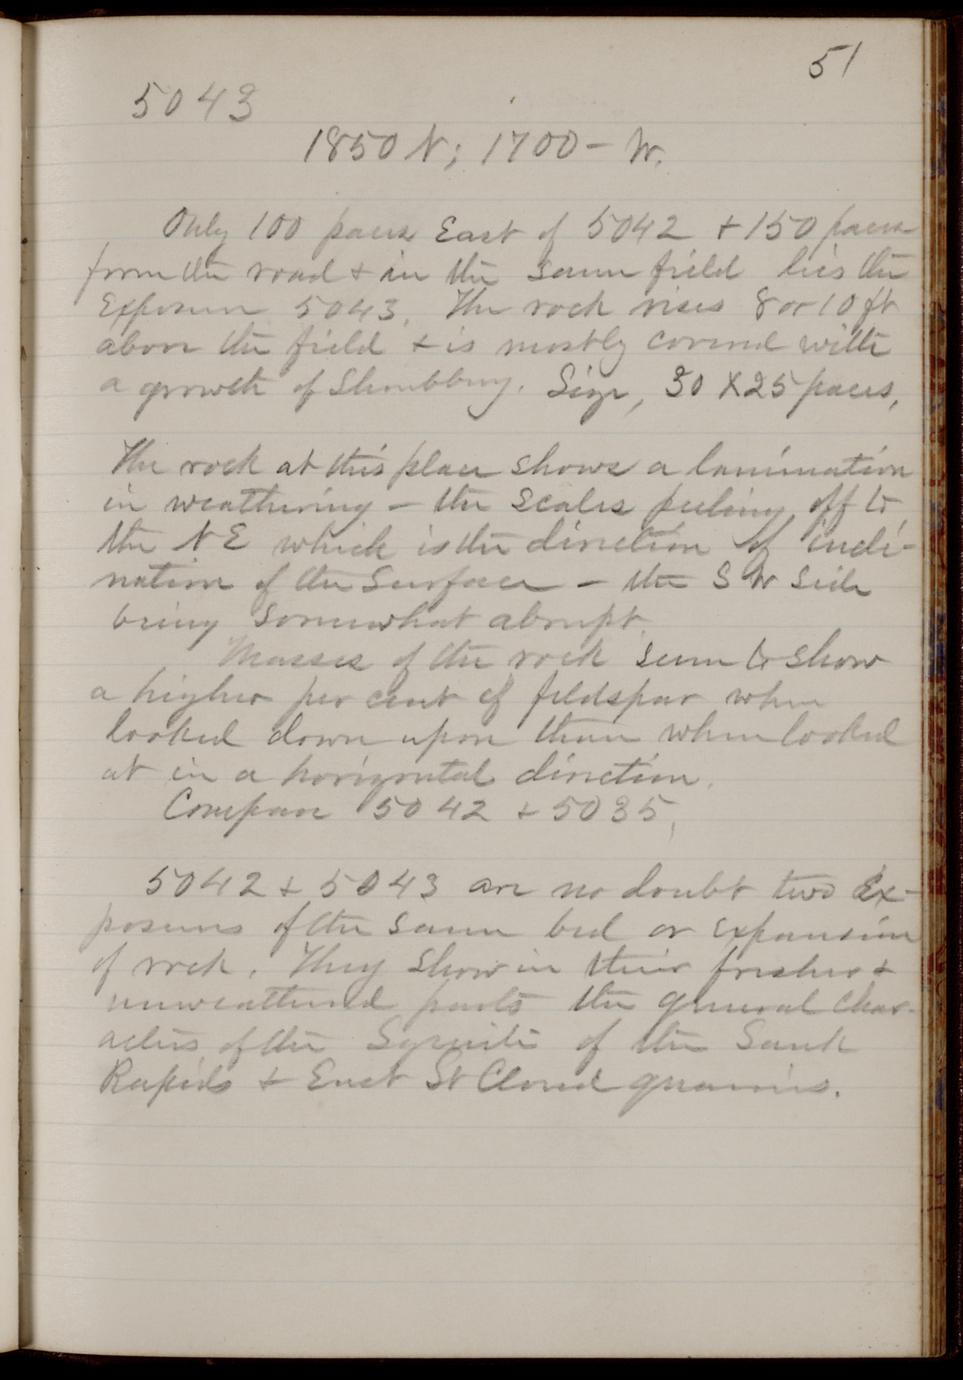 51
5043
1850 N; 1700 - W.
Only 100 paces East of 5042 + 150 paces
from the road + in the same field lies the
Exposure 5043. The rock rises 8 or 10 ft
above the field + is mostly covered with
a growth of Shrubbery. Size, 30 X 25 paces,
The rock at this place shows a lamination
in weathering - the scales peeling off to
the NE which is the direction of incli-
nation of the surface - the S W side
being somewhat abrupt.
Masses of the rock seem to show
a higher per cent of feldspar when
looked down upon than when looked
at in a horizontal direction.
Compare 5042 + 5035,
5042 + 5043 are no doubt two Ex-
posures of the same bed or expansion
of rock. They show in their fresher +
unweathered parts the general char-
acters of the Syenite of the Sauk
Rapids + East St Cloud quarries.